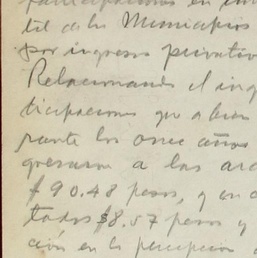 participaciones en
de los Municipios
por ingresos privativo
Relacionando el
ticipaciones que
rante los once años
gresaron a las
$90.48 pesos, y en
todos $8.57 pesos y
ción en la percepción